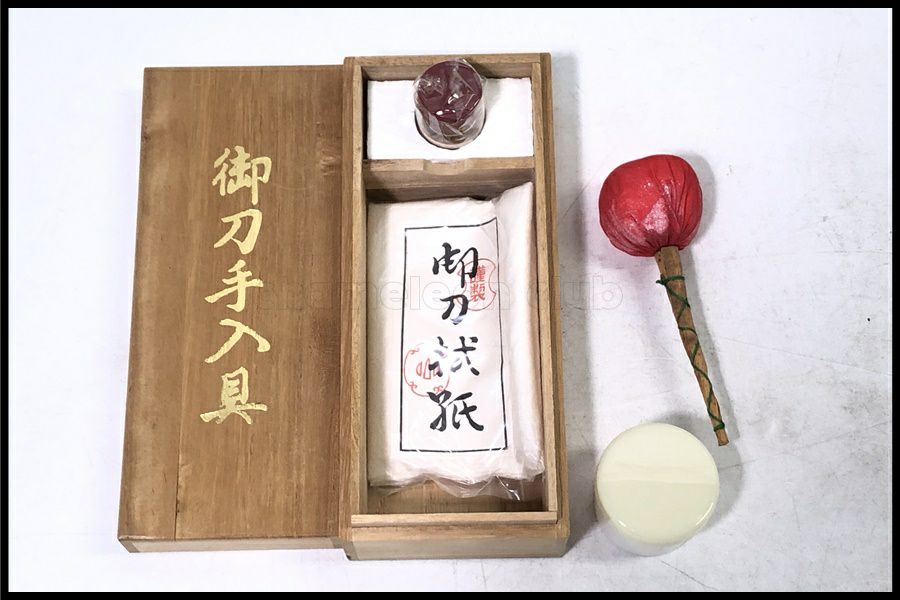 御刀手入具
御刀拭紙
謹製